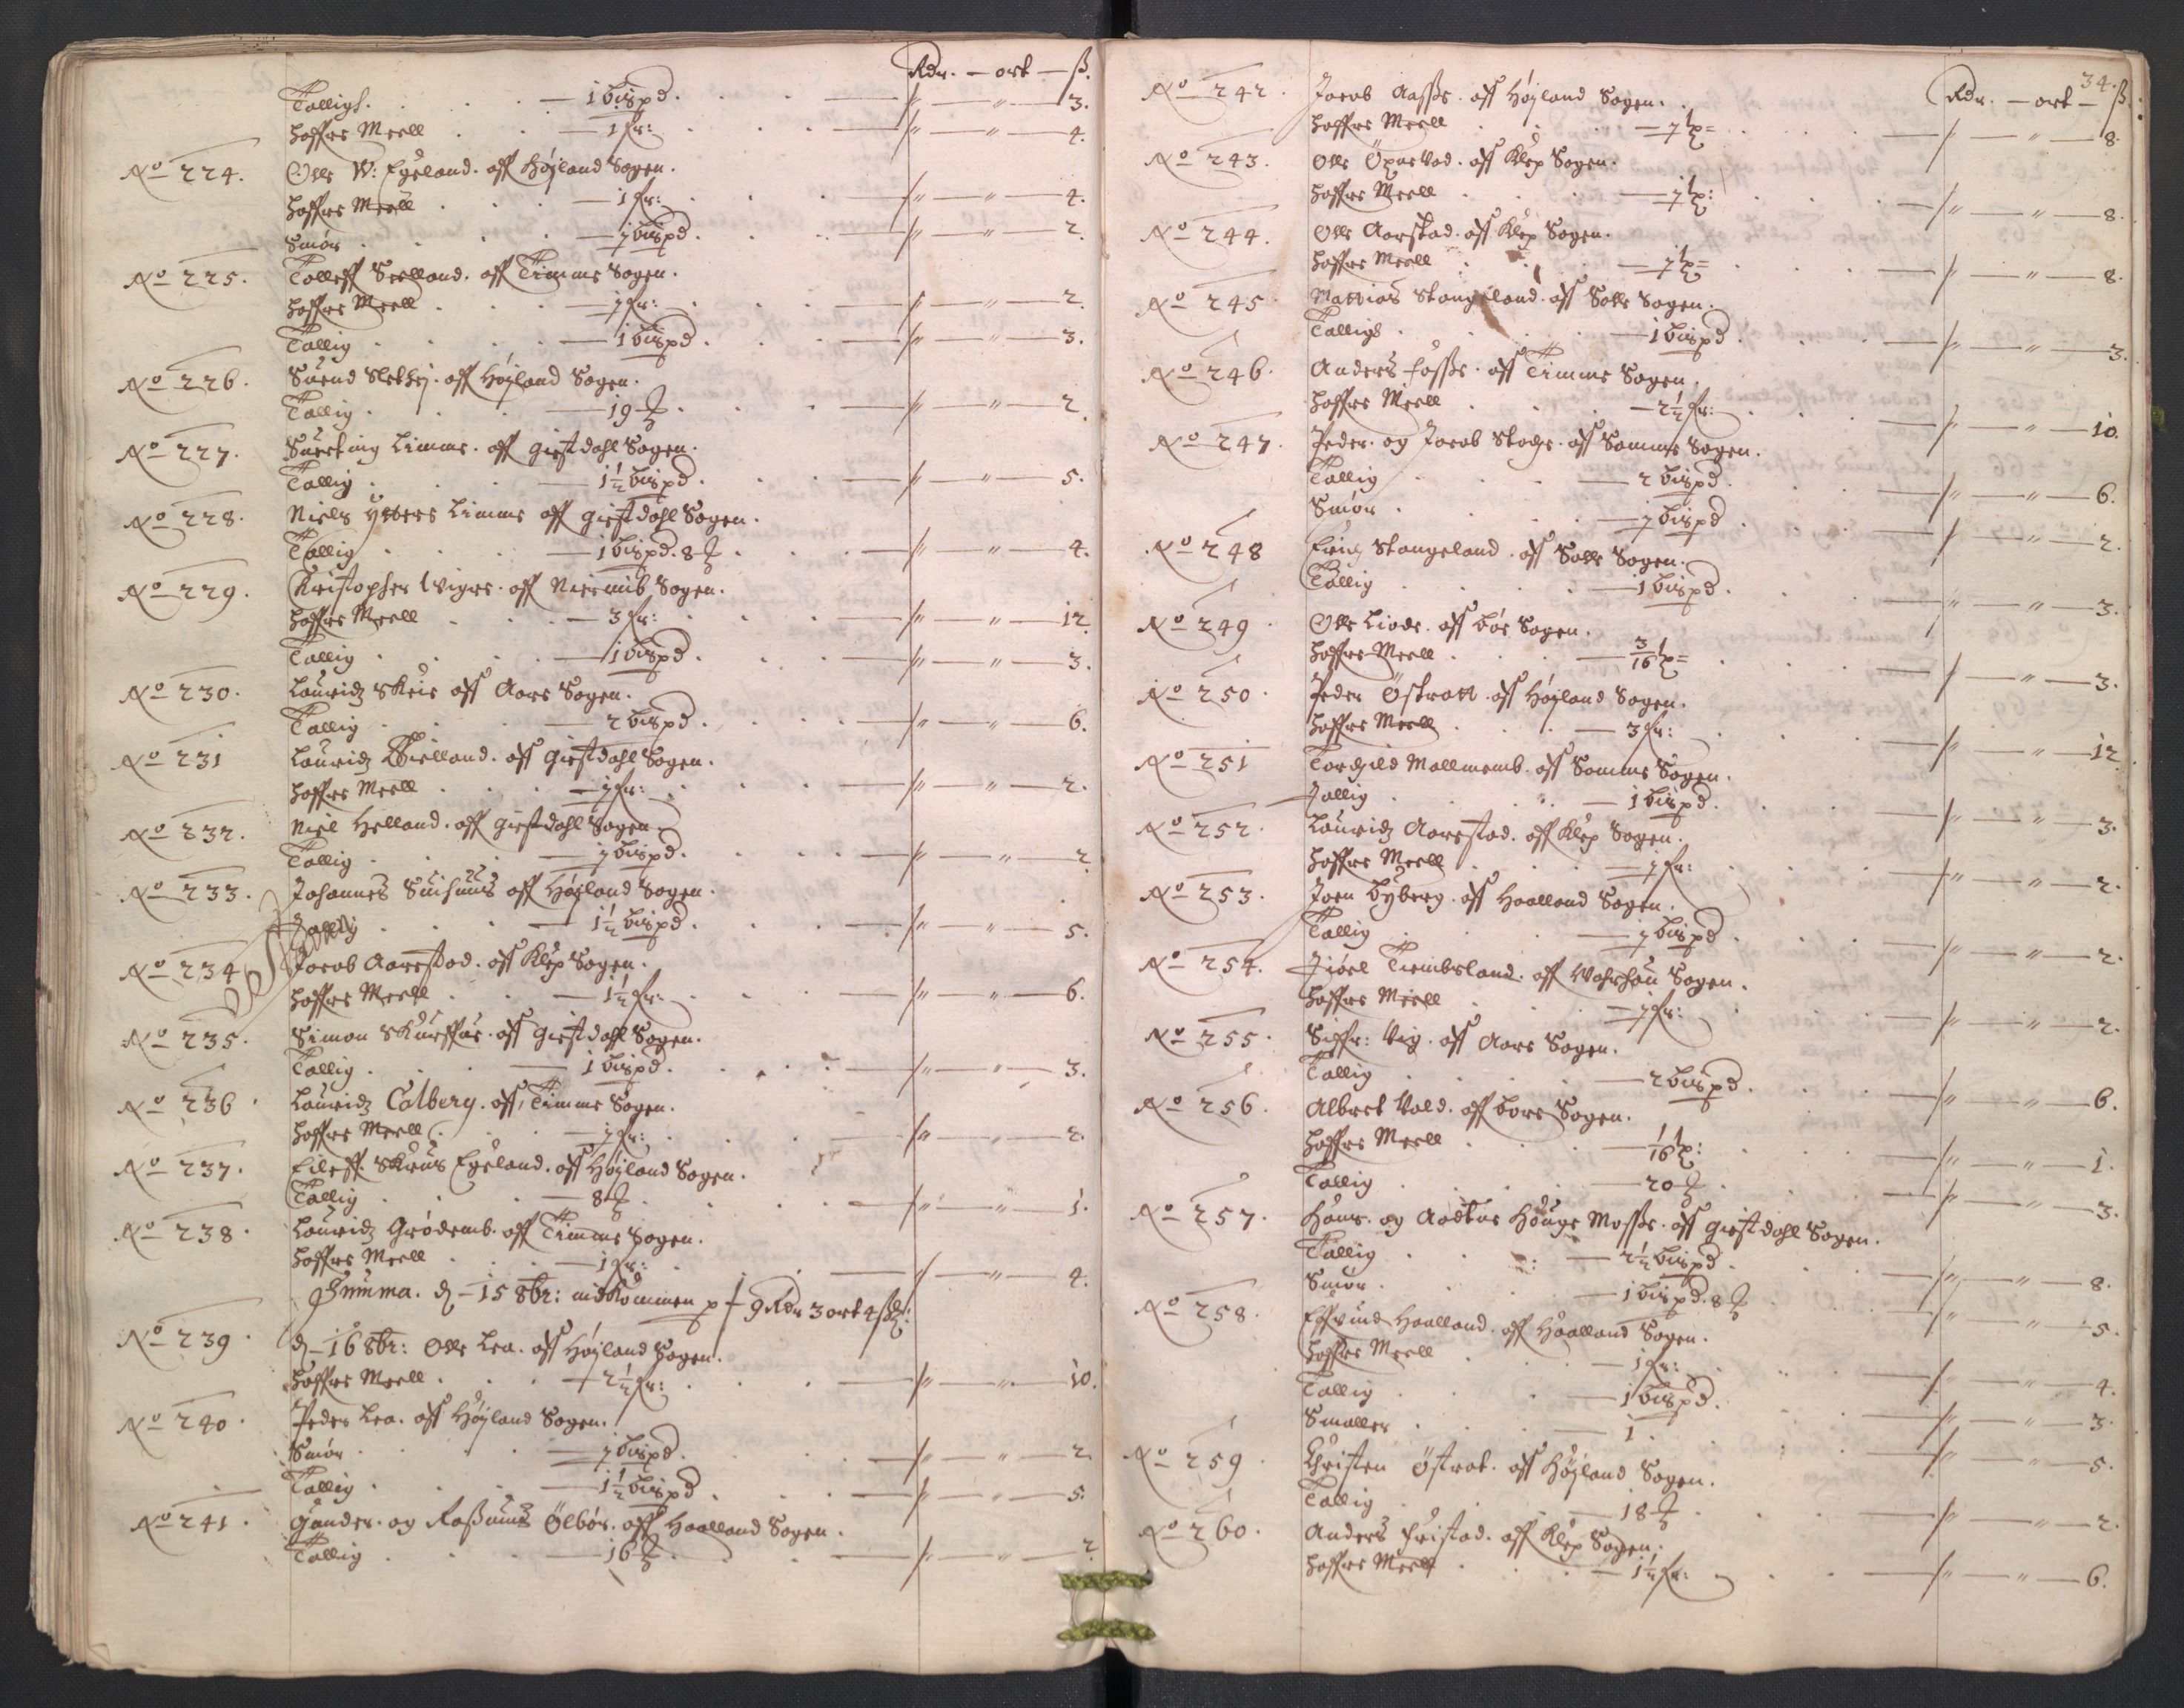 Rdr. — ort — ß.
Tallig. — 1 bispd. — " — " — 3.
haffre Meell — 1 fr: — " — " — 4.
No 224. Olle W: Egeland. aff Høyland Sogen.
haffre Meell — 1 fr: — " — " — 4.
Smør — ½ bispd. — " — " — 2.
No 225. Tolleff Seelland. aff Timme Sogen.
haffre Meell — ½ fr: — " — " — 2.
Tallig — 1 bispd. — " — " — 3.
No 226. Suend Slethej. aff Høyland Sogen.
Tallig — 19 ℔ — " — " — 2.
No 227. Limme. aff giestdahl Sogen.
Tallig — 1½ bispd. — " — " — 5.
No 228. Niels Ytters Limme aff giestdahl Sogen.
Tallig — 1 bispd. 8 ℔ — " — " — 4.
No 229. Christopher Wigre. aff Sogen.
haffre Meell — 3 fr: — " — " — 12.
Tallig — 1 bispd. — " — " — 3.
No 230. Lauridz Skeie aff Aare Sogen.
Tallig — 2 bispd. — " — " — 6.
No 231 Lauridz aff giestdahl Sogen.
haffre Meell — ½ fr: — " — " — 2.
No 232. Niel Helland. aff giestdahl Sogen.
Tallig — ½ bispd. — " — " — 2
No 233. Johannes aff Høyland Sogen.
Tallig — 1½ bispd. — " — " — 5.
No 234 Jacob Aarestad. aff Klep Sogen.
haffre Meell — 1½ fr: — " — " — 6.
No 235. Simon Skurffue. aff giestdahl Sogen.
Tallig — 1 bispd. — " — " — 3.
No 236. Lauridz Calberg. aff Timme Sogen.
haffre Meell — ½ fr: — " — " — 2.
No 237. Eileff Skrus Egeland. aff Høyland Sogen.
Tallig — 8 ℔ — " — " — 1.
No 238. Lauridz Grødemb. aff Timme Sogen.
haffre Meell — 1 fr: — " — " — 4.
Summa. d — 15 8br: indkommen p — 9 Rdr 3 ort 4 ß
No 239. d — 16 8br: Olle Lea. aff Høyland Sogen.
haffre Meell — 2½ fr: — " — " — 10.
No 240. Peder Lea. aff Høyland Sogen.
Smør — ½ bispd. — " — " — 2
Tallig — 1½ bispd — " — " — 5.
No 241. Gunder. og Raßmus Ølbør. aff Haalland Sogen.
Tallig — 16 ℔ — " — " — 2
34.
Rdr. — ort — ß.
No 242. Jacob Aasße. aff Høyland Sogen.
haffre Meell — ½ — " — " — 8.
No 243. Olle aff Klep Sogen.
haffre Meell — ½ — " — " — 8.
No 244. Olle Aarstad. aff Klep Sogen.
haffre Meell — ½ — " — " — 8.
No 245. Mattias Stangeland. aff Solle Sogen.
Tallig — 1 bispd. — " — " — 3.
No 246. Anders Fosße. aff Timme Sogen.
haffre Meell — 2½ fr: — " — " — 10.
No 247. Peder. og Jacob aff Somme Sogen.
Tallig — 2 bispd. — " — " — 6.
Smør — ½ bispd — " — " — 2.
No 248 Stangeland. aff Solle Sogen.
Tallig — 1 bispd. — " — " — 3.
No 249 Olle Liode. aff bøe Sogen.
haffre Meell — 3/16 — " — " — 3.
No 250. Peder Østratt. aff Høyland Sogen.
haffre Meell — 3 fr: — " — " — 12.
No 251 Malmemb. aff Somme Sogen.
Tallig — 1 bispd. — " — " — 3.
No 252. Lauridz Aarestad. aff Klep Sogen.
haffre Meell — ½ fr: — " — " — 2.
No 253. Joen Byberg. aff Haalland Sogen.
Tallig — ½ bispd — " — " — 2.
No 254. aff Warhau Sogen.
haffre Meell — ½ fr: — " — " — 2.
No 255. Siffr: Vig. aff Aare Sogen.
Tallig — 2 bispd. — " — " — 6.
No 256. Albret Vold. aff bore Sogen.
haffre Meell — 1/16 — " — " — 1.
Tallig — 20 ℔ — " — " — 3.
No 257. Hans. og Hauge Mosße. aff giestdahl Sogen.
Tallig — 2½ bispd. — " — " — 8.
Smør — 1 bispd. 8 ℔ — " — " — 5.
No 258. Haalland. aff Haalland Sogen.
haffre Meell — 1 fr: — " — " — 4.
Tallig — 1 bispd. — " — " — 3.
Smaller — 1 — " — " — 5.
No 259. Christen Østrat. aff Høyland Sogen.
Tallig — 18 ℔ — " — " — 2.
No 260. Anders Fristad. aff Klep Sogen.
haffre Meell — 1½ fr: — " — " — 6.